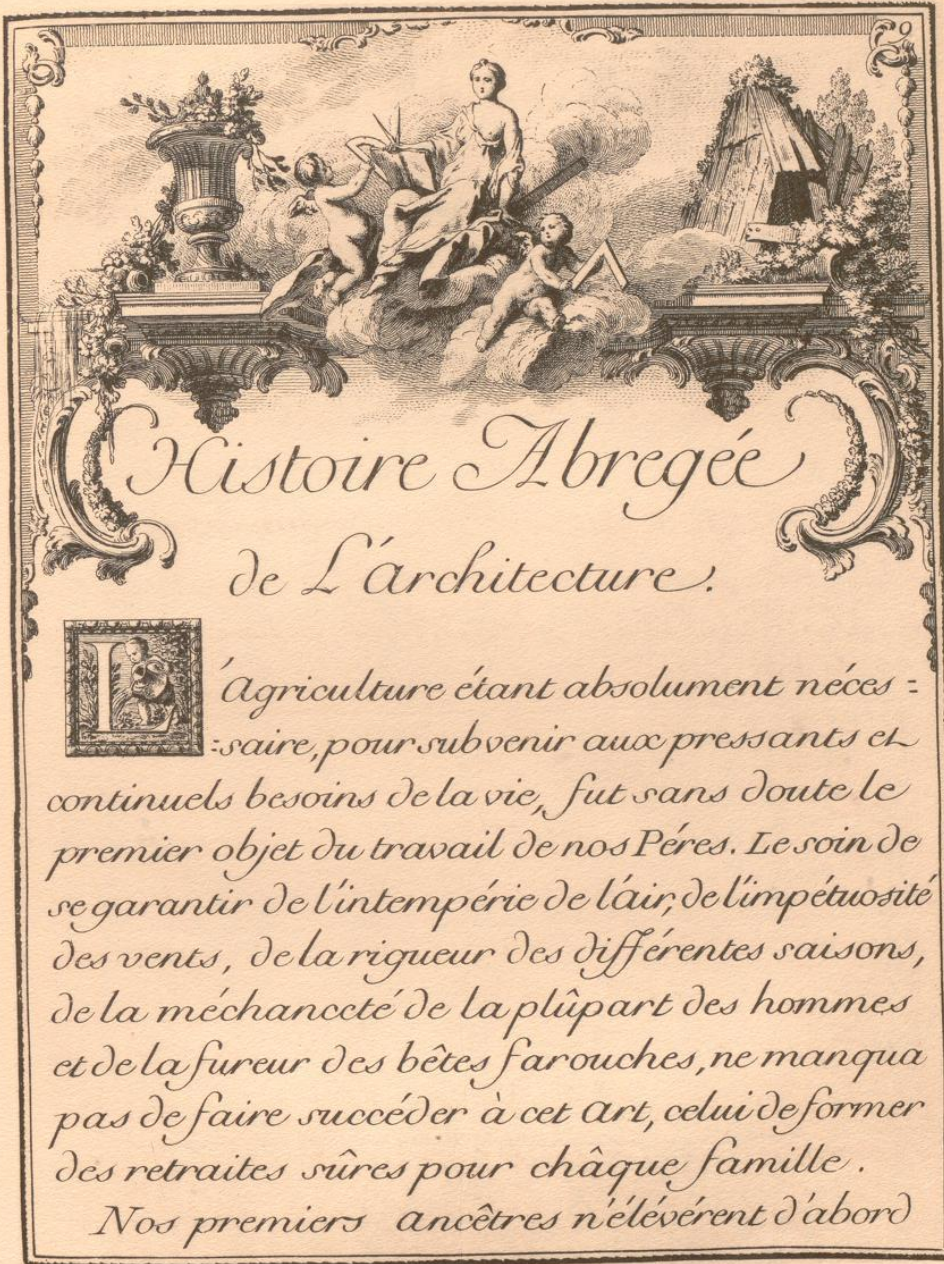 9
Histoire Abregée
de L'Architecture.
L'Agriculture étant absolument néces=
=saire, pour subvenir aux pressants et
continuels besoins de la vie, fut sans doute le
premier objet du travail de nos Péres. Le soin de
se garantir de l'intempérie de l'air, de l'impétuosité
des vents, de la rigueur des différentes saisons,
de la méchanceté de la plûpart des hommes
et de la fureur des bêtes farouches, ne manqua
pas de faire succéder à cet Art, celui de former
des retraites sûres pour châque famille.
Nos premiers Ancêtres n'élévérent d'abord